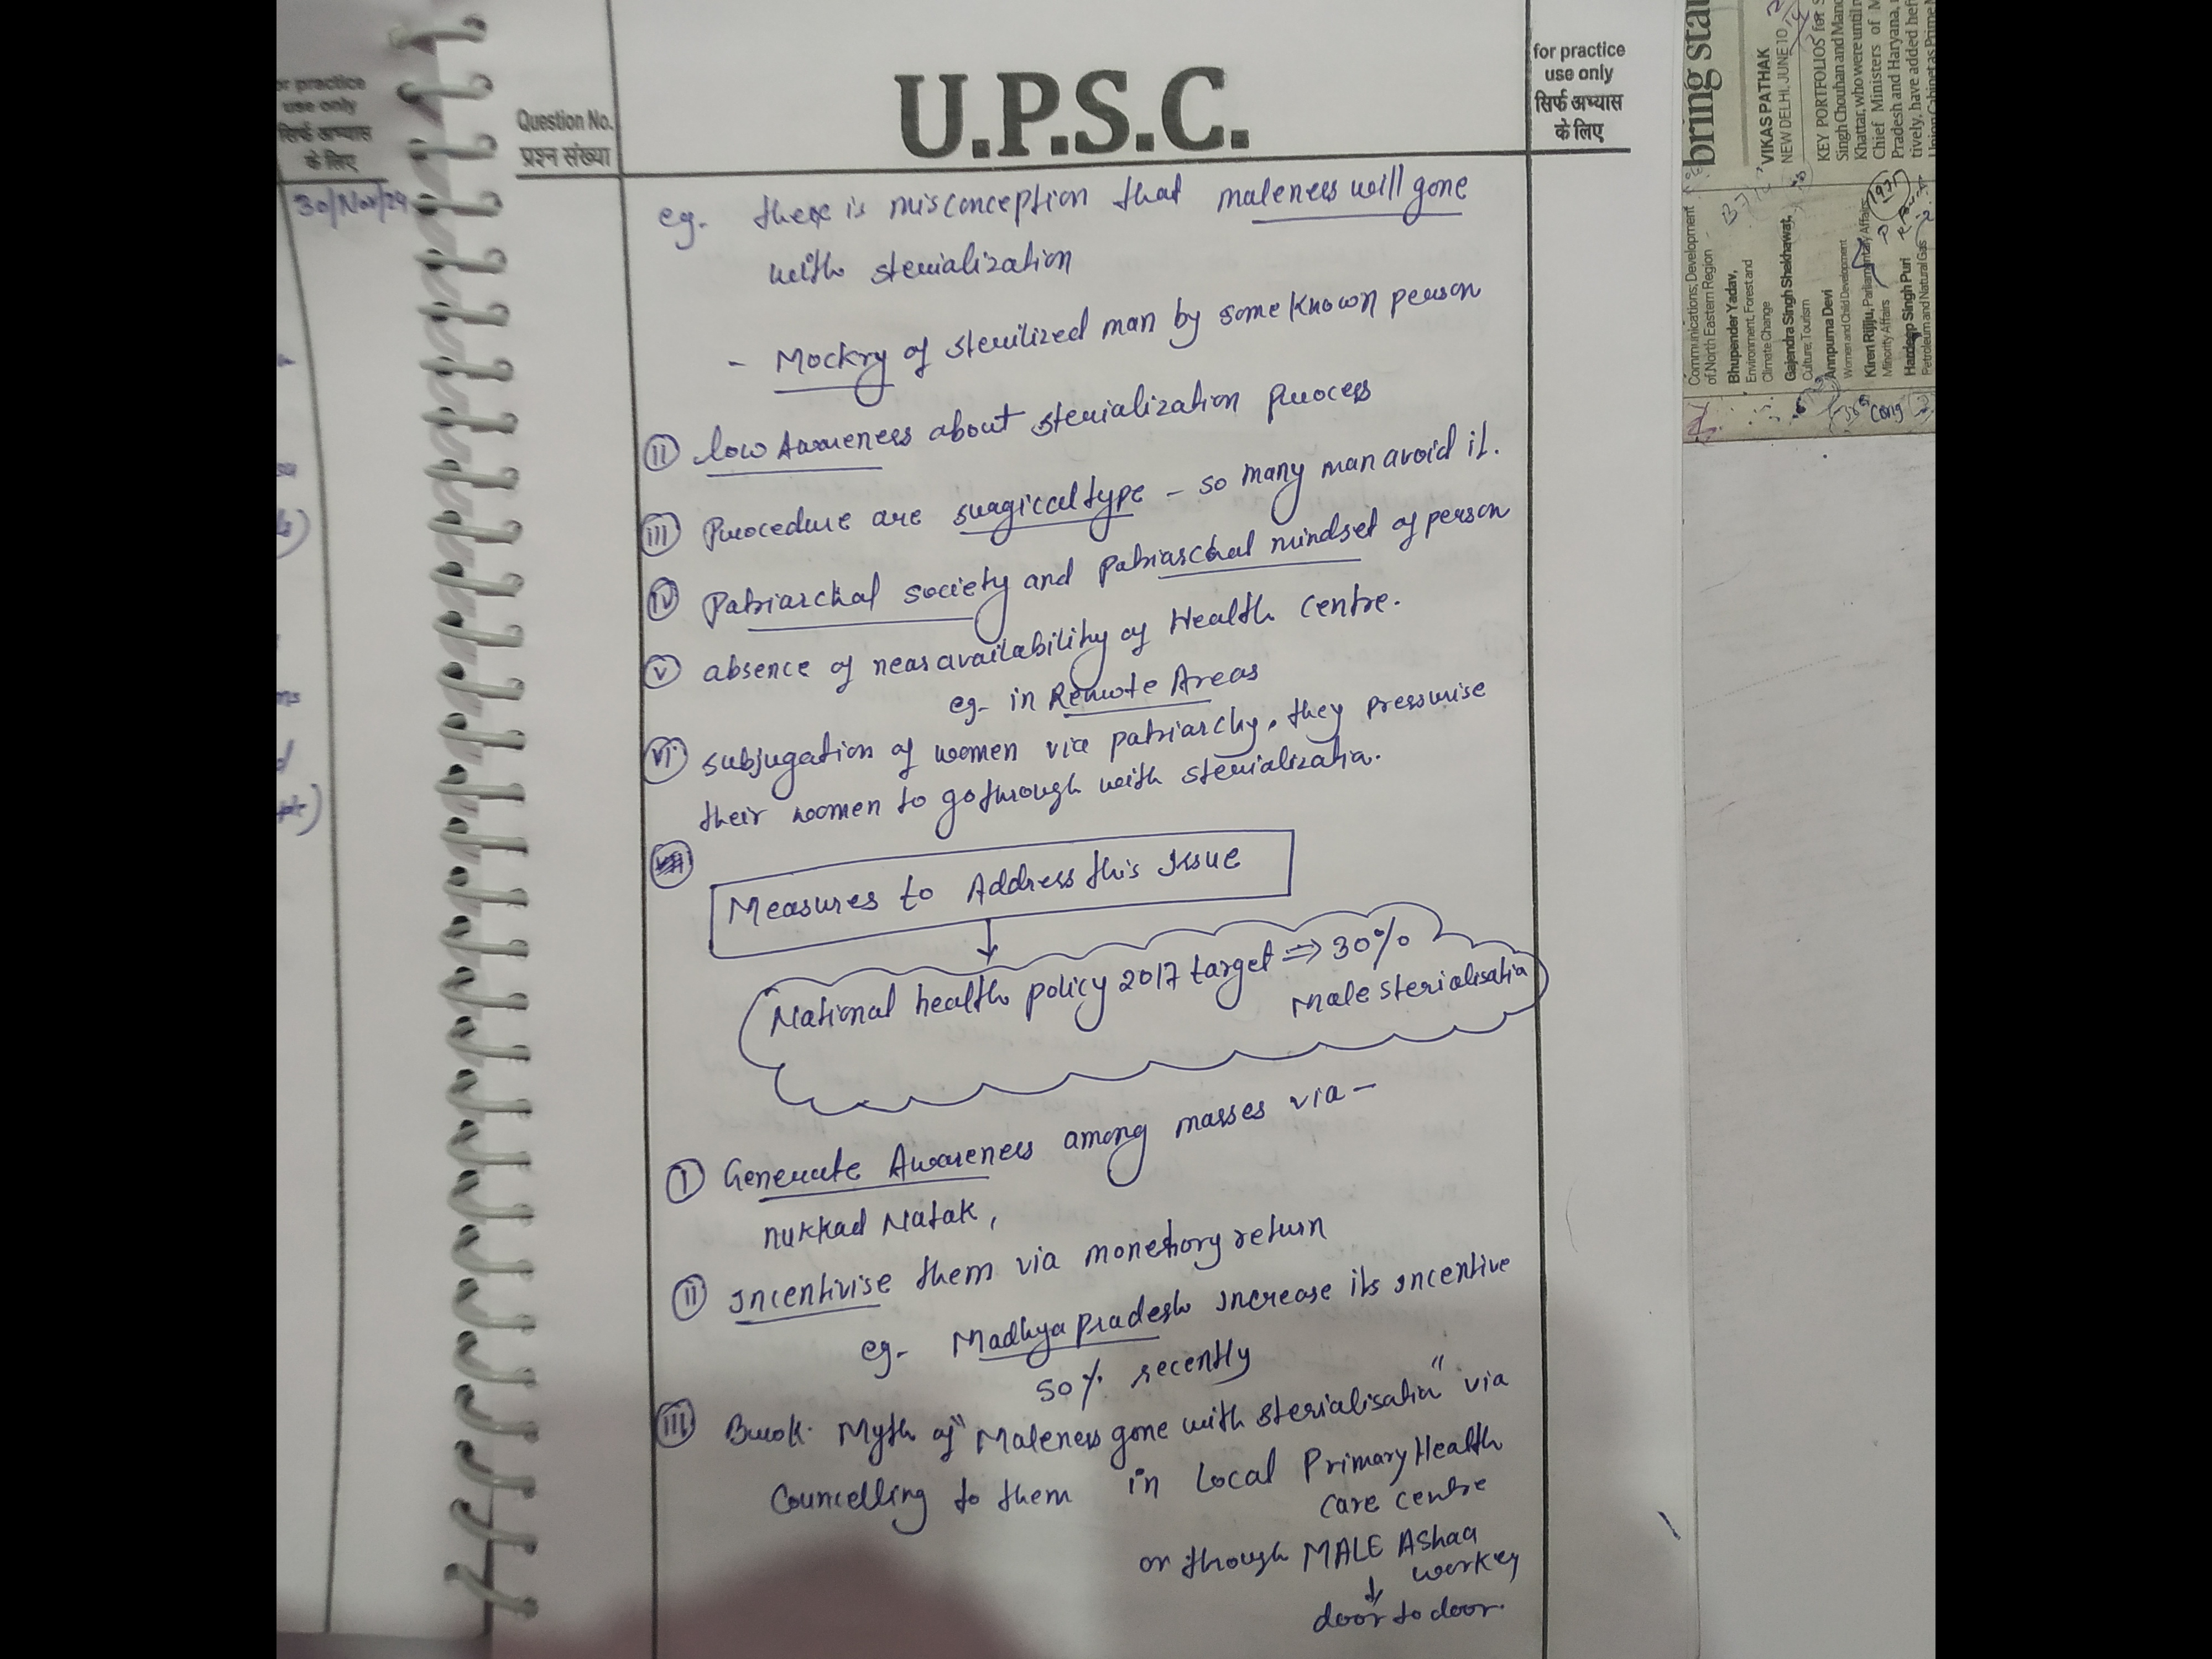 or practice
use only
सिर्फ अभ्यास
के लिए
30/Nov/24
Question No.
प्रश्न संख्या
U.P.S.C.
for practice
use only
सिर्फ अभ्यास
के लिए
eg. there is misconception that maleness will gone
with sterialization
- Mockry of sterilized man by some known person
(ii) low Awareness about sterialization process
(iii) Procedure are surgical type - so many man avoid it.
(iv) Patriarchal society and patriarchal mindset of person
(v) absence of near availability of Health centre.
eg- in Remote Areas
(vi) subjugation of women via patriarchy, they pressurise
their women to go through with sterialization.
Measures to Address this Issue
↓
National health policy 2017 target ⇒ 30%
Male sterialisation
(I) Generate Awareness among masses via -
nukkad Natak,
(II) Incentivise them via monetory return
eg- Madhya pradesh increase its incentive
50% recently
(III) Break Myth of "Maleness gone with sterialisation" via
Councelling to them in Local Primary Health
care centre
or through MALE AShaa
worker
↓
door to door.
bring sta
VIKAS PATHAK
NEW DELHI, JUNE 10
KEY PORTFOLIOS for
Singh Chouhan and Mano
Khattar, who were until
Chief Ministers of M
Pradesh and Haryana,
tively, have added hef
Union Cabinet as Prime
Communications; Development
of North Eastern Region
Bhupender Yadav,
Environment, Forest and
Climate Change
Gajendra Singh Shekhawat,
Culture; Tourism
Annpurna Devi
Women and Child Development
Kiren Rijiju, Parliamentary Affairs;
Minority Affairs
Hardeep Singh Puri
Petroleum and Natural Gas
Cong